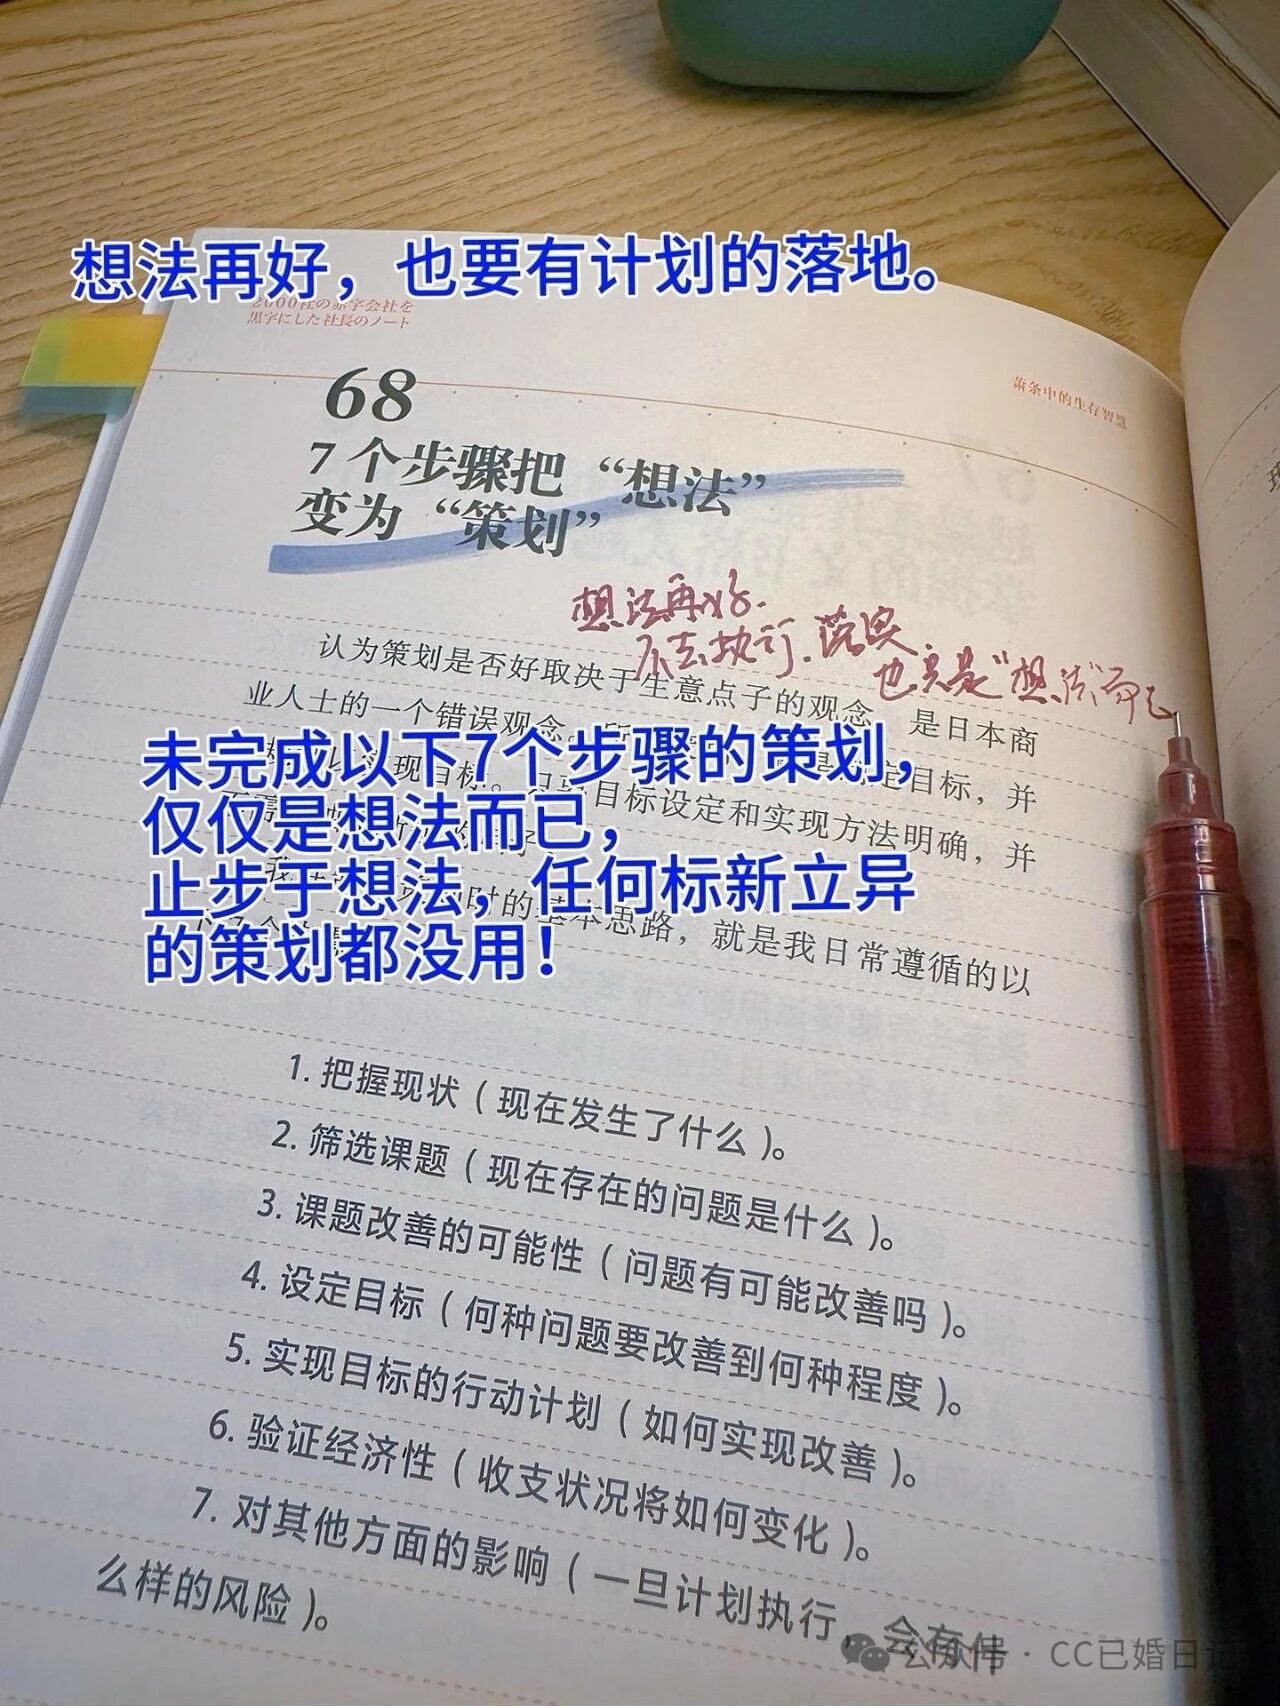 想法再好，也要有计划的落地。
2000社の赤字会社を
黒字にした社長のノート
萧条中的生存智慧
68
7个步骤把“想法”
变为“策划”
想法再好.
不去执行.落实.
也只是“想法”而已
认为策划是否好取决于生意点子的观念，是日本商
业人士的一个错误观念。
定目标，并
现目标。
目标设定和实现方法明确，并
未完成以下7个步骤的策划，
仅仅是想法而已，
止步于想法，任何标新立异
的策划都没用！
时的基本思路，就是我日常遵循的以
1. 把握现状（现在发生了什么）。
2. 筛选课题（现在存在的问题是什么）。
3. 课题改善的可能性（问题有可能改善吗）。
4. 设定目标（何种问题要改善到何种程度）。
5. 实现目标的行动计划（如何实现改善）。
6. 验证经济性（收支状况将如何变化）。
7. 对其他方面的影响（一旦计划执行，会有什
么样的风险）。
公众号 · CC已婚日记